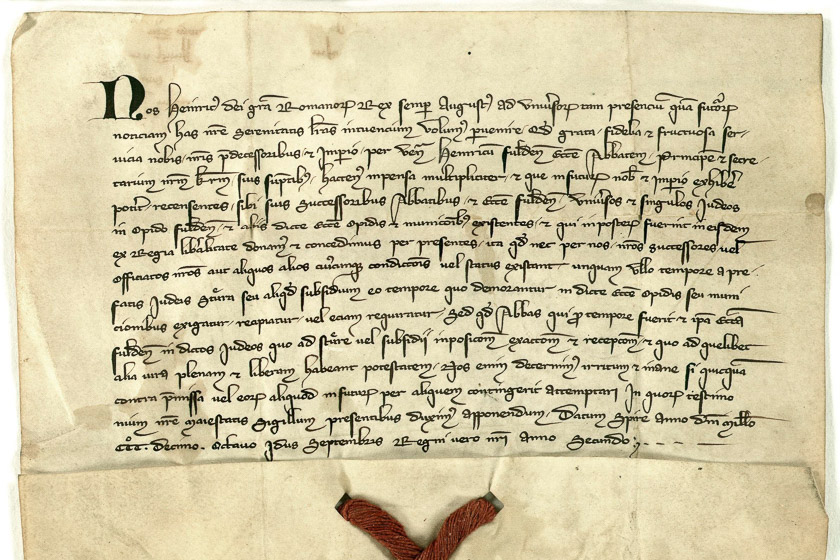 Nos Heinric' dei gra Romanor Rex semp August' ad univsor tam presenciu qua futror
noticiam has nre Serenitatis lras intuencium volum' pvenire Qd grata fidelia & fructuosa ser-
vicia nobis nris pdecessoribus & Impio per ven Heinricu fulden Ecce Abbatem Principe & secre-
tarium nrm krm suis suptib' hacten' impensa multipliciter & que in futur nob & impio exhibe
potit recensentes sibi suis Successoribus Abbatibus & Ecce fulden univsos & singulos Judeos
in opido fulden & aliis dicte Ecce Opidis & municoib' existentes & qui in poster fuerint in eisdem
ex Regia libalitate donam' & concedimus per presentes ita qd nec per nos nros successores vel
officiatos nros aut aliquos alios cuicumq condicois vel status existant unquam ullo tempore a pre-
fatis Judeis Stura seu aliqd subsidium eo tempore quo demorantur in dicte Ecce Opidis seu muni
cionibus exigatur recipiatur vel eciam requiratur Sed qd Abbas qui p tempore fuerit & ipa Eccia
fulden in dictos Judeos quo ad sture vel subsidii inposicom exactom & recepcom & quo ad quelibet
alia iura plenam & liberam habeant potestatem Nos enim decernim' irritum & inane si quicqua
contra pmissa vel eor aliquod in futur per aliquem contingerit attemptari In quor testimo
nium nre maiestatis Sigillum presentibus duxim' apponendum Datum Spire anno dni millo
CCC Decimo Octavo Idus Septembris Regni vero nri anno Secundo